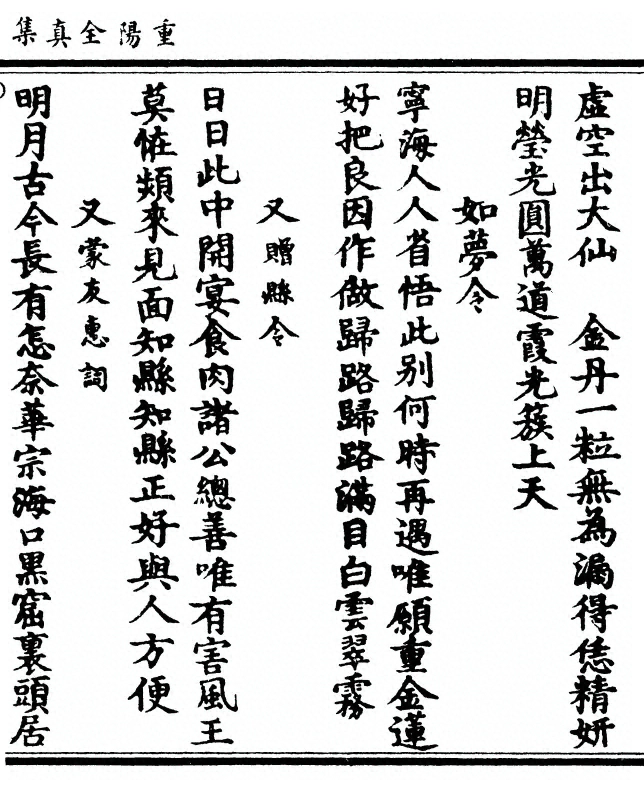 重陽全真集
虛空出大仙　金丹一粒無為漏得恁精妍
明瑩光圓萬道霞光簇上天
如夢令
寧海人人省悟此別何時再遇唯願重金蓮
好把良因作做歸路歸路滿目白雲翠霧
又贈縣令
日日此中開宴食肉諸公總善唯有害風王
莫恠頻來見面知縣知縣正好與人方便
又蒙友惠詞
明月古今長有怎奈華宗海口黑窟裏頭居